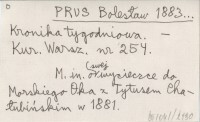 PRUS Bolesław 1883...
Kronika tygodniowa. –
Kur. Warsz. nr 254.
(swej)
M. in. o wycieczce do
Morskiego Oka z Tytusem Cha-
łubińskim w 1881.